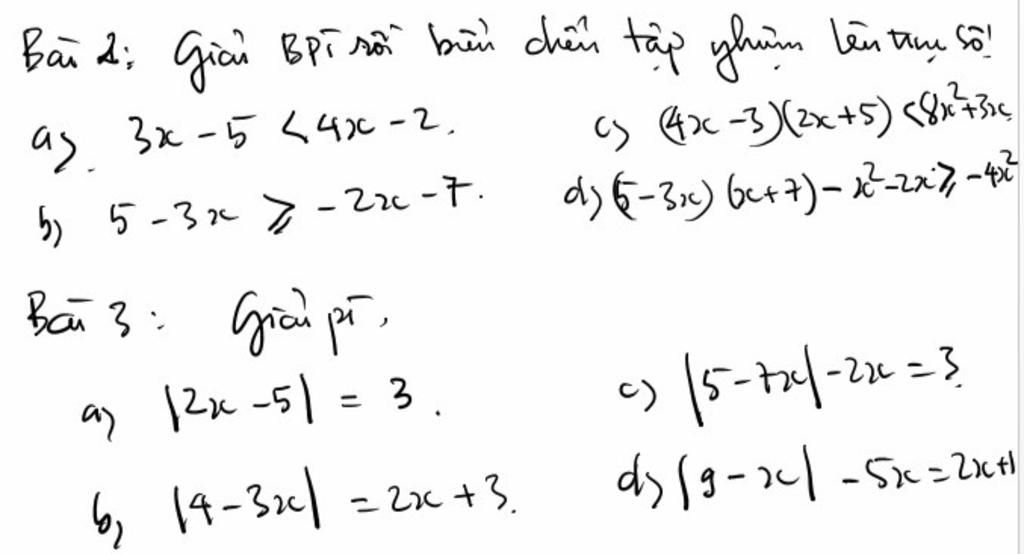 Bài 2: Giải BPT rồi biểu diễn tập nghiệm lên trục số!
a) 3x - 5 < 4x - 2.
c) (4x - 3)(2x + 5) < 8x² + 3x
b) 5 - 3x ≥ - 2x - 7.
d) (5 - 3x)(x + 7) - x² - 2x ≥ - 4x²
Bài 3: Giải pt.
a) |2x - 5| = 3.
c) |5 - 7x| - 2x = 3.
b) |4 - 3x| = 2x + 3.
d) |9 - x| - 5x = 2x + 1